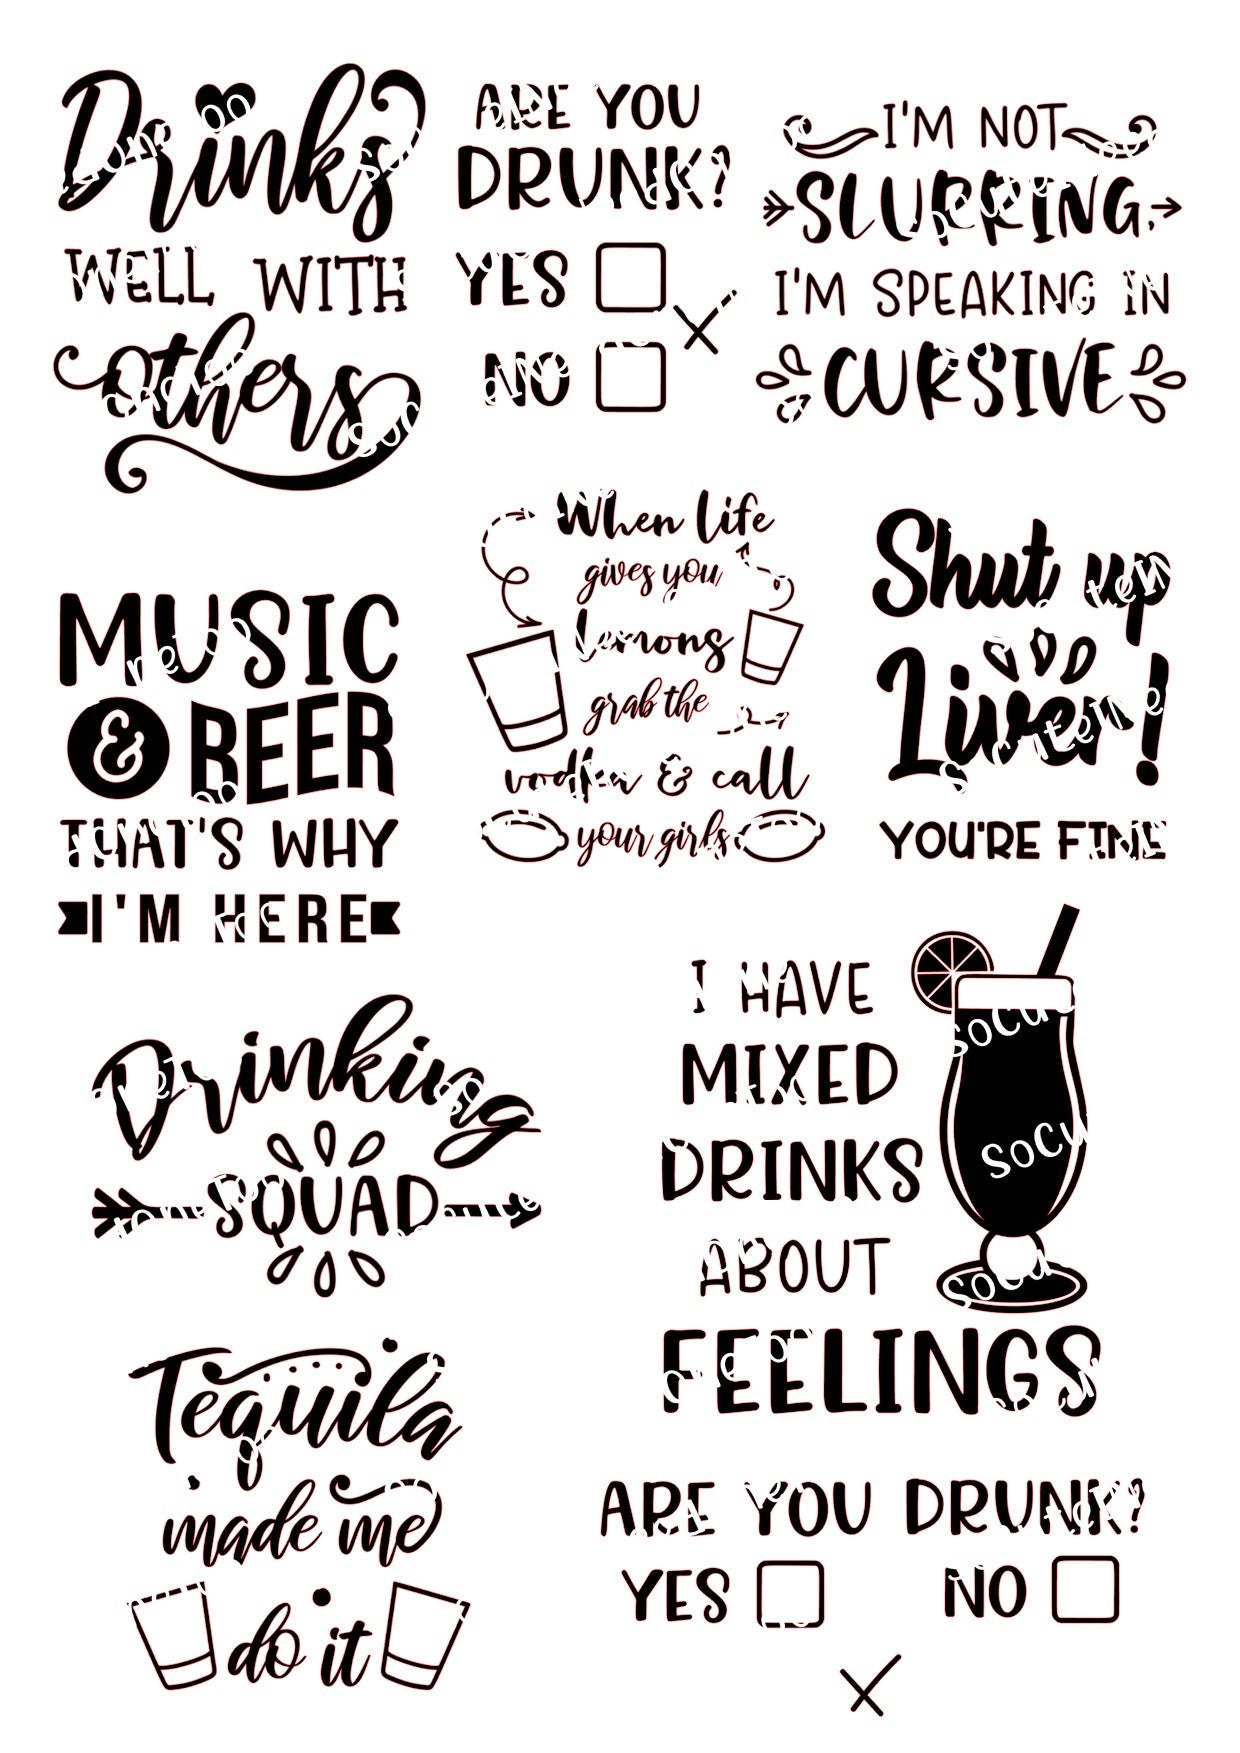 Drinks
WELL WITH
others
ARE YOU
DRUNK?
YES
NO
I'M NOT
SLURRING,
I'M SPEAKING IN
CURSIVE
MUSIC
& BEER
THAT'S WHY
I'M HERE
When life
gives you
lemons
grab the
vodka & call
your girls
Shut up
Liver!
YOU'RE FINE
Drinking
SQUAD
I HAVE
MIXED
DRINKS
ABOUT
FEELINGS
Tequila
made me
do it
ARE YOU DRUNK?
YES NO